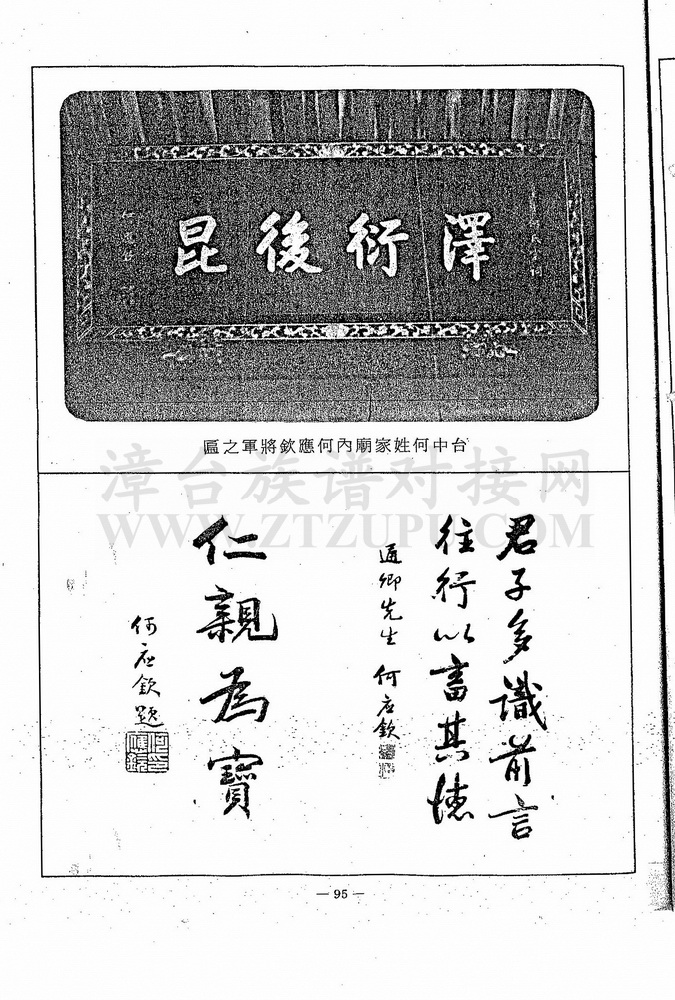 澤衍後昆
台中何姓家廟內何應欽將軍之匾
漳台族谱对接网
WWW.ZTZUPU.COM
君子多識前言
往行以畜其德
通卿先生 何应欽
仁親為寶
何应欽題
— 95 —